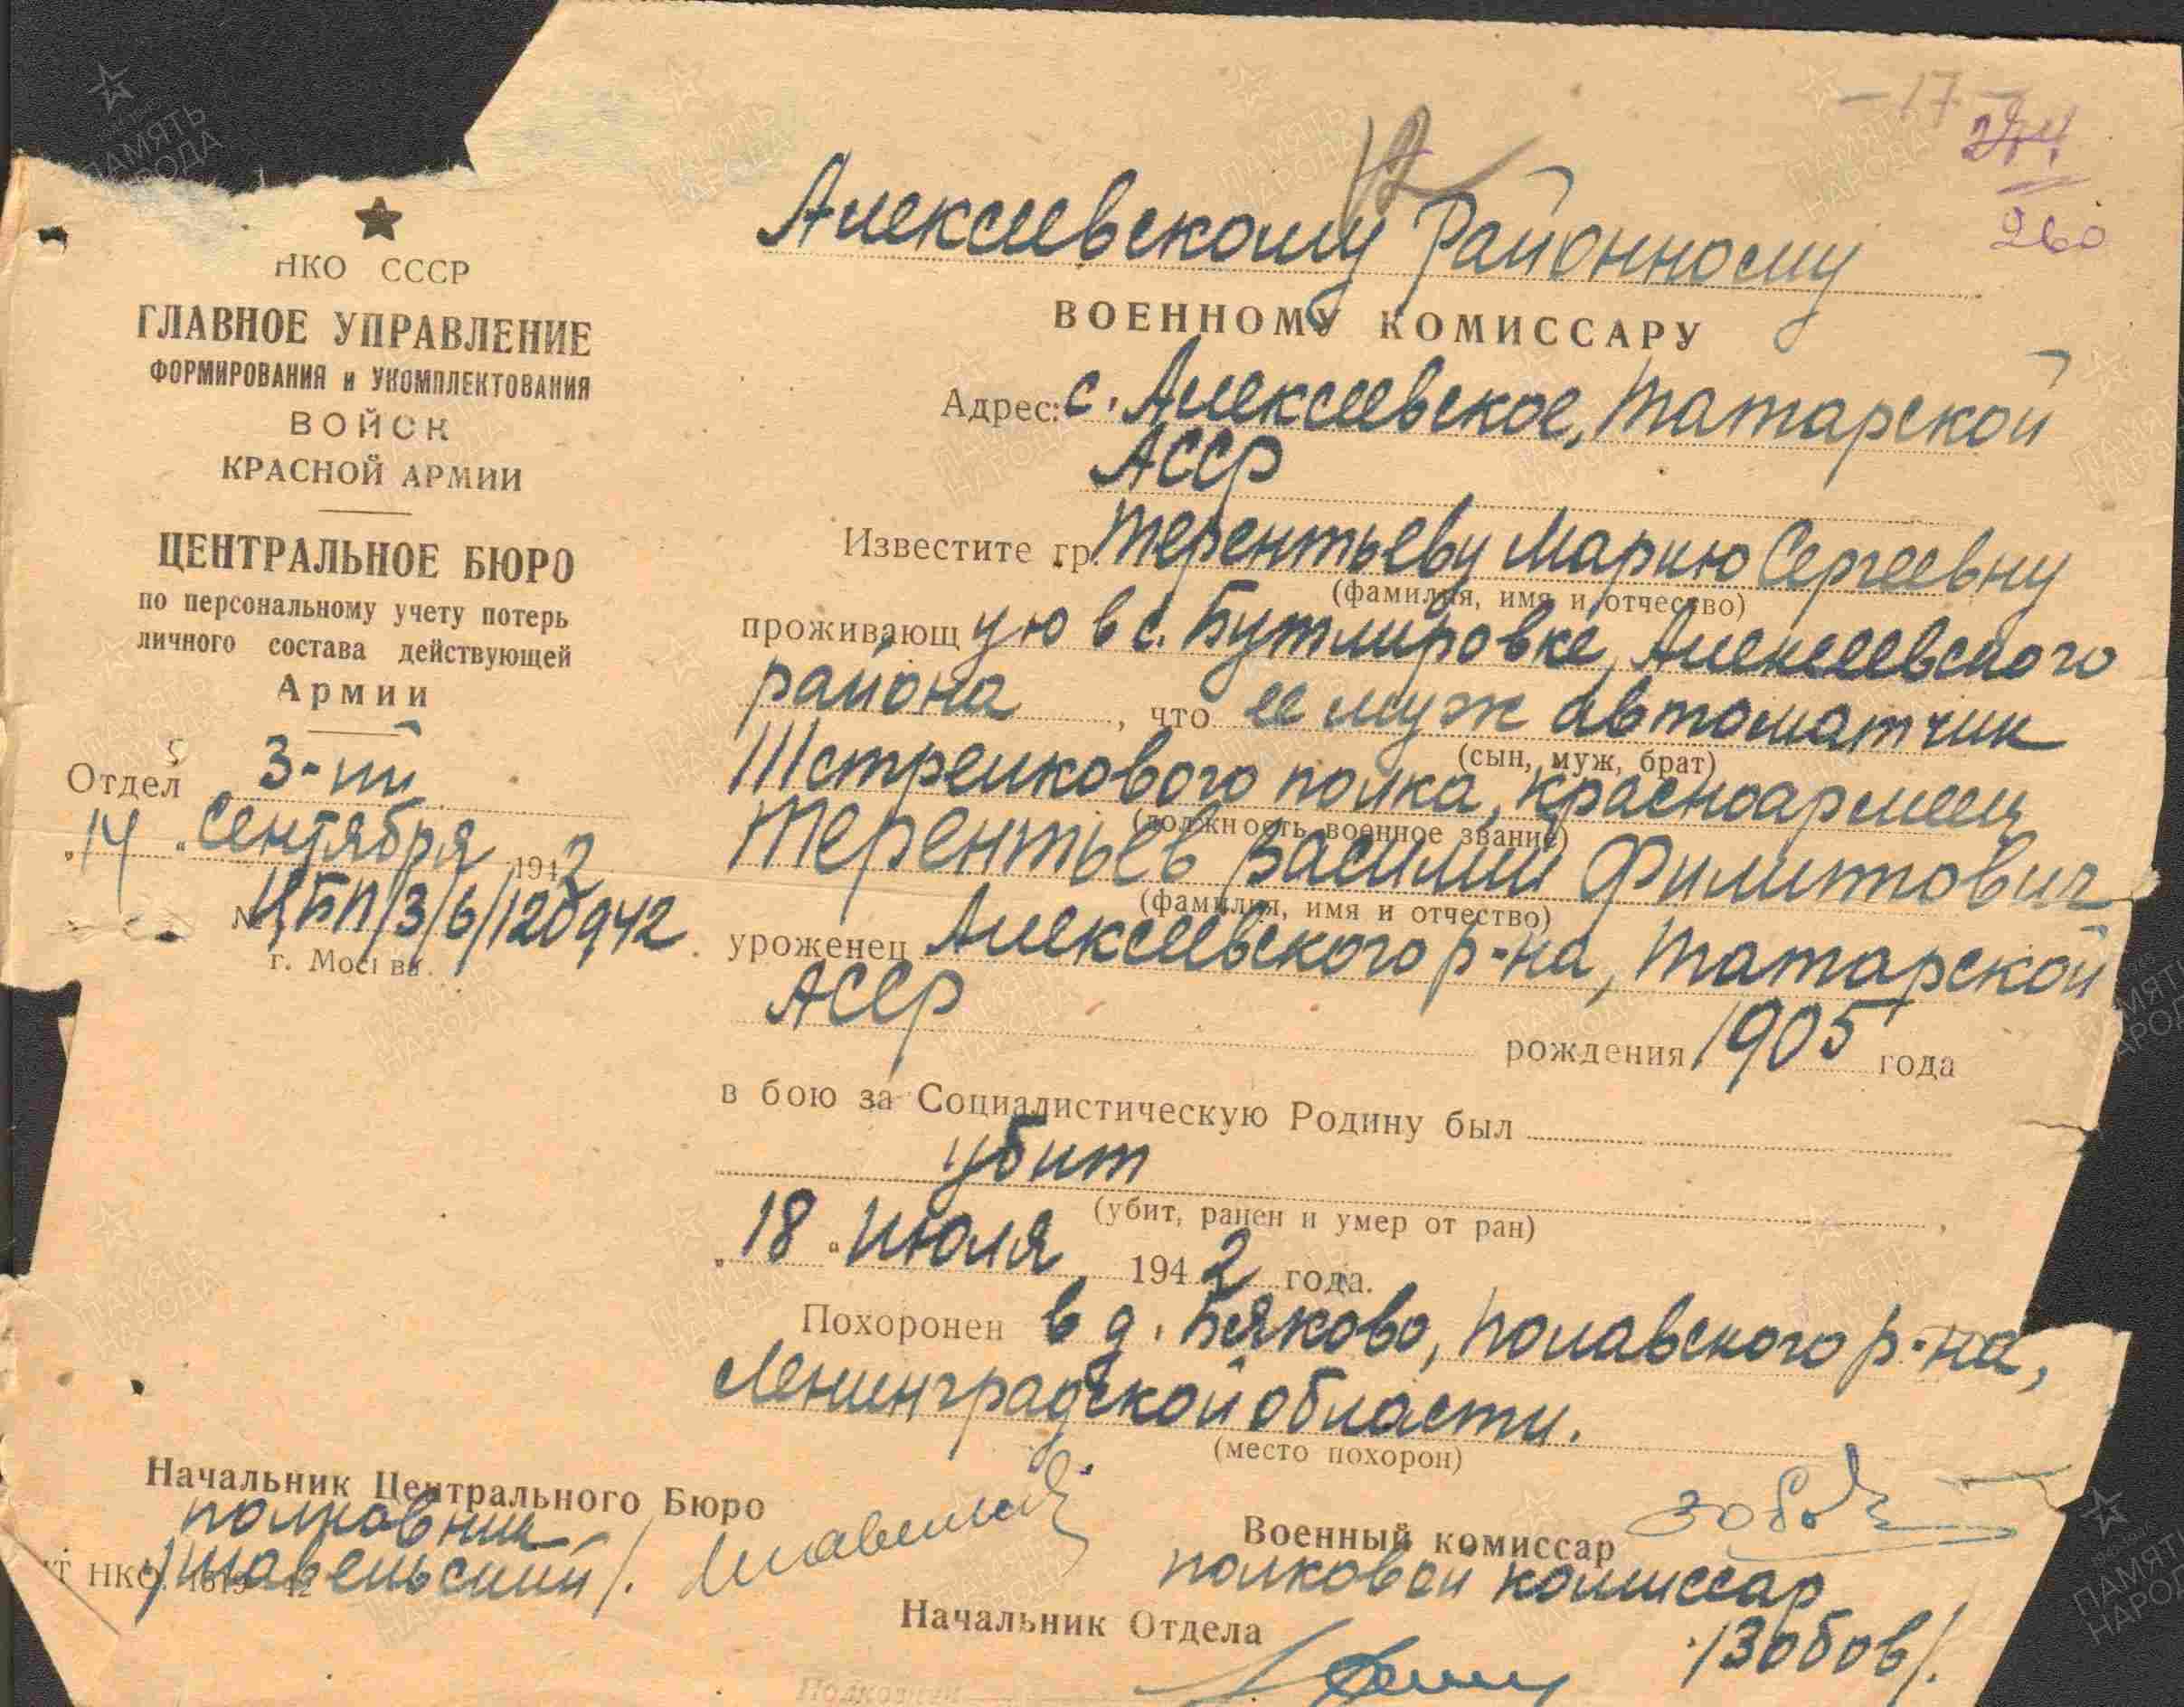 - 17 -
12
244
260
НКО СССР
ГЛАВНОЕ УПРАВЛЕНИЕ
ФОРМИРОВАНИЯ и УКОМПЛЕКТОВАНИЯ
ВОЙСК
КРАСНОЙ АРМИИ
ЦЕНТРАЛЬНОЕ БЮРО
по персональному учету потерь
личного состава действующей
Армии
Отдел 3-ий
"14" сентября 1942
№ ЦБП/3/6/120942
г. Москва.
Алексеевскому Районному
ВОЕННОМУ КОМИССАРУ
Адрес: с. Алексеевское, Татарской
АССР
Известите гр. Терентьеву Марию Сергеевну
(фамилия, имя и отчество)
проживающ ую в с. Бутлировке, Алексеевского
района, что ее муж автоматчик
(сын, муж, брат)
111 стрелкового полка, красноармеец
(должность военное звание)
Терентьев Василий Филиппович
(фамилия, имя и отчество)
уроженец Алексеевского р-на, Татарской
АССР
рождения 1905 года
в бою за Социалистическую Родину был
убит
(убит, ранен и умер от ран)
"18" июля 1942 года.
Похоронен в д. Бяково, Полавского р-на,
Ленинградской области.
(место похорон)
Начальник Центрального Бюро
полковник
/Шавельский/.
Т НКО. 1619 42
Военный комиссар
полковой комиссар
/Зобов/.
Начальник Отдела
Полковник
ПАМЯТЬ
НАРОДА